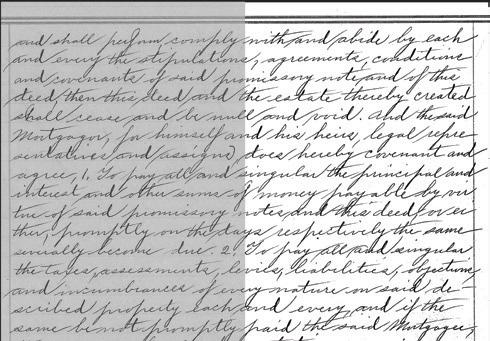 and shall perform comply with and abide by each
and every the stipulations, agreements, conditions
and covenants of said promissory note and of this
deed, then this deed and the estate thereby created
shall cease and be null and void. And the said
Mortgagor, for himself and his heirs, legal repre-
sentatives and assigns, does hereby covenant and
agree, 1. To pay all and singular the principal and
interest and other sums of money payable by vir
tue of said promissory notes, and this deed, or ei
ther, promptly on the days respectively the same
severally become due. 2. To pay all and singular
the taxes, assessments, levies, liabilities, obligations
and incumbrances of every nature on said de-
scribed property each and every, and if the
same be not promptly paid the said Mortgagee,